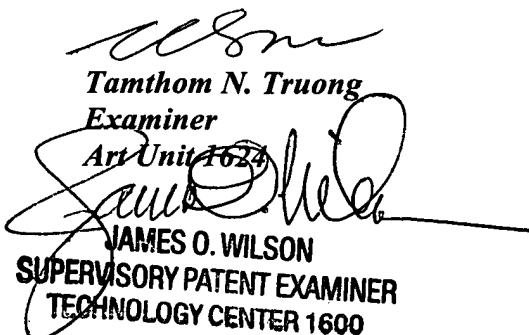 Tamthom N. Truong
Examiner
Art Unit 1624
JAMES O. WILSON
SUPERVISORY PATENT EXAMINER
TECHNOLOGY CENTER 1600